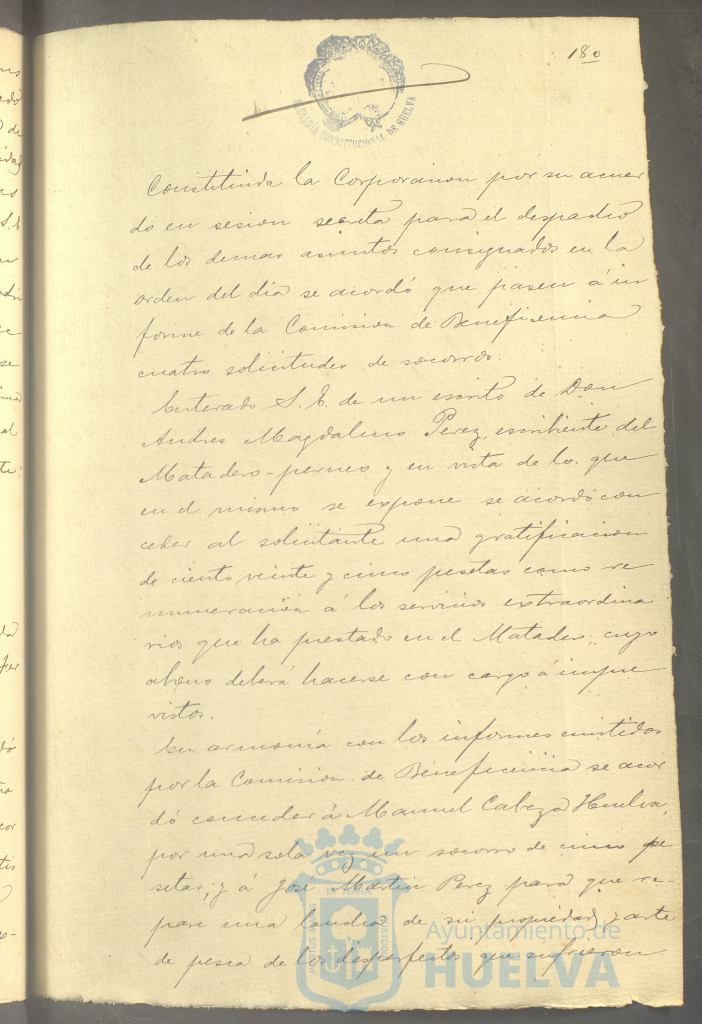 180
ALCALDIA CONSTITUCIONAL DE HUELVA
Constituida la Corporacion por su acuer
do en sesion secreta para el despacho
de los demas asuntos consignados en la
orden del dia se acordó que pasen á in
forme de la Comision de Beneficencia
cuatro solicitudes de socorro.
Enterado S. E. de un escrito de Don
Andres Magdaleno Perez, escribiente del
Matadero-perneo y en vista de lo que
en el mismo se expone se acordó con
ceder al solicitante una gratificacion
de ciento veinte y cinco pesetas como re
muneración á los servicios extraordina
rios que ha prestado en el Matadero, cuyo
abono deberá hacerse con cargo á impre
vistos.
En armonía con los informes emitidos
por la Comision de Beneficencia se acor
dó conceder á Manuel Cabeza Huelva,
por una sola vez un socorro de cinco pe
setas, y á José Martin Perez para que re-
pare una lancha de su propiedad y arte
de pesca de los desperfectos que sufrieron
PORTUS MARIS
ET TERRÆ
CUSTODIA
Ayuntamiento de
HUELVA